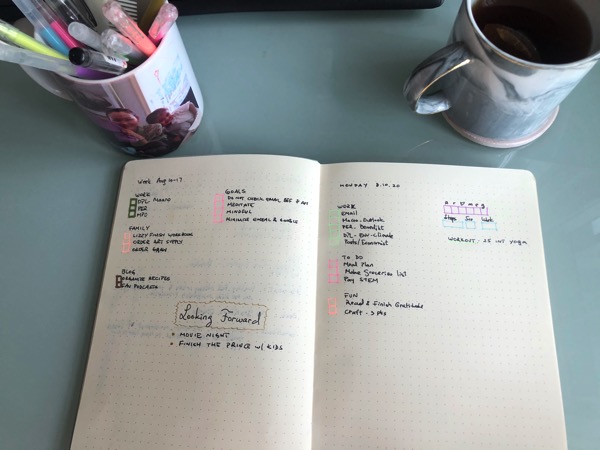 Week Aug 10-17
WORK
DPL- Mondo
PER
MPJ
FAMILY
LIZZY FINISH WORKBOOK
ORDER ART SUPPLY
ORDER
BLOG
ORGANIZE RECIPES
CAN PODCASTS
GOALS
DO NOT CHECK EMAIL BEF
MEDITATE
MINDFUL
MINIMIZE CEREAL &
Looking Forward
• MOVIE NIGHT
• FINISH THE PRINCE W/ KIDS
MONDAY 8.10.20
WORK
EMAIL
Macro-Outlook
PER. Benedikt
DPL- Env-Climate
Posts/Economist
TO DO
Meal Plan
Make Groceries list
Pay STEM
FUN
Read & Finish Gratitude
Craft - 3 pks
Steps Six Week
WORKOUT: 25 w/ yoga